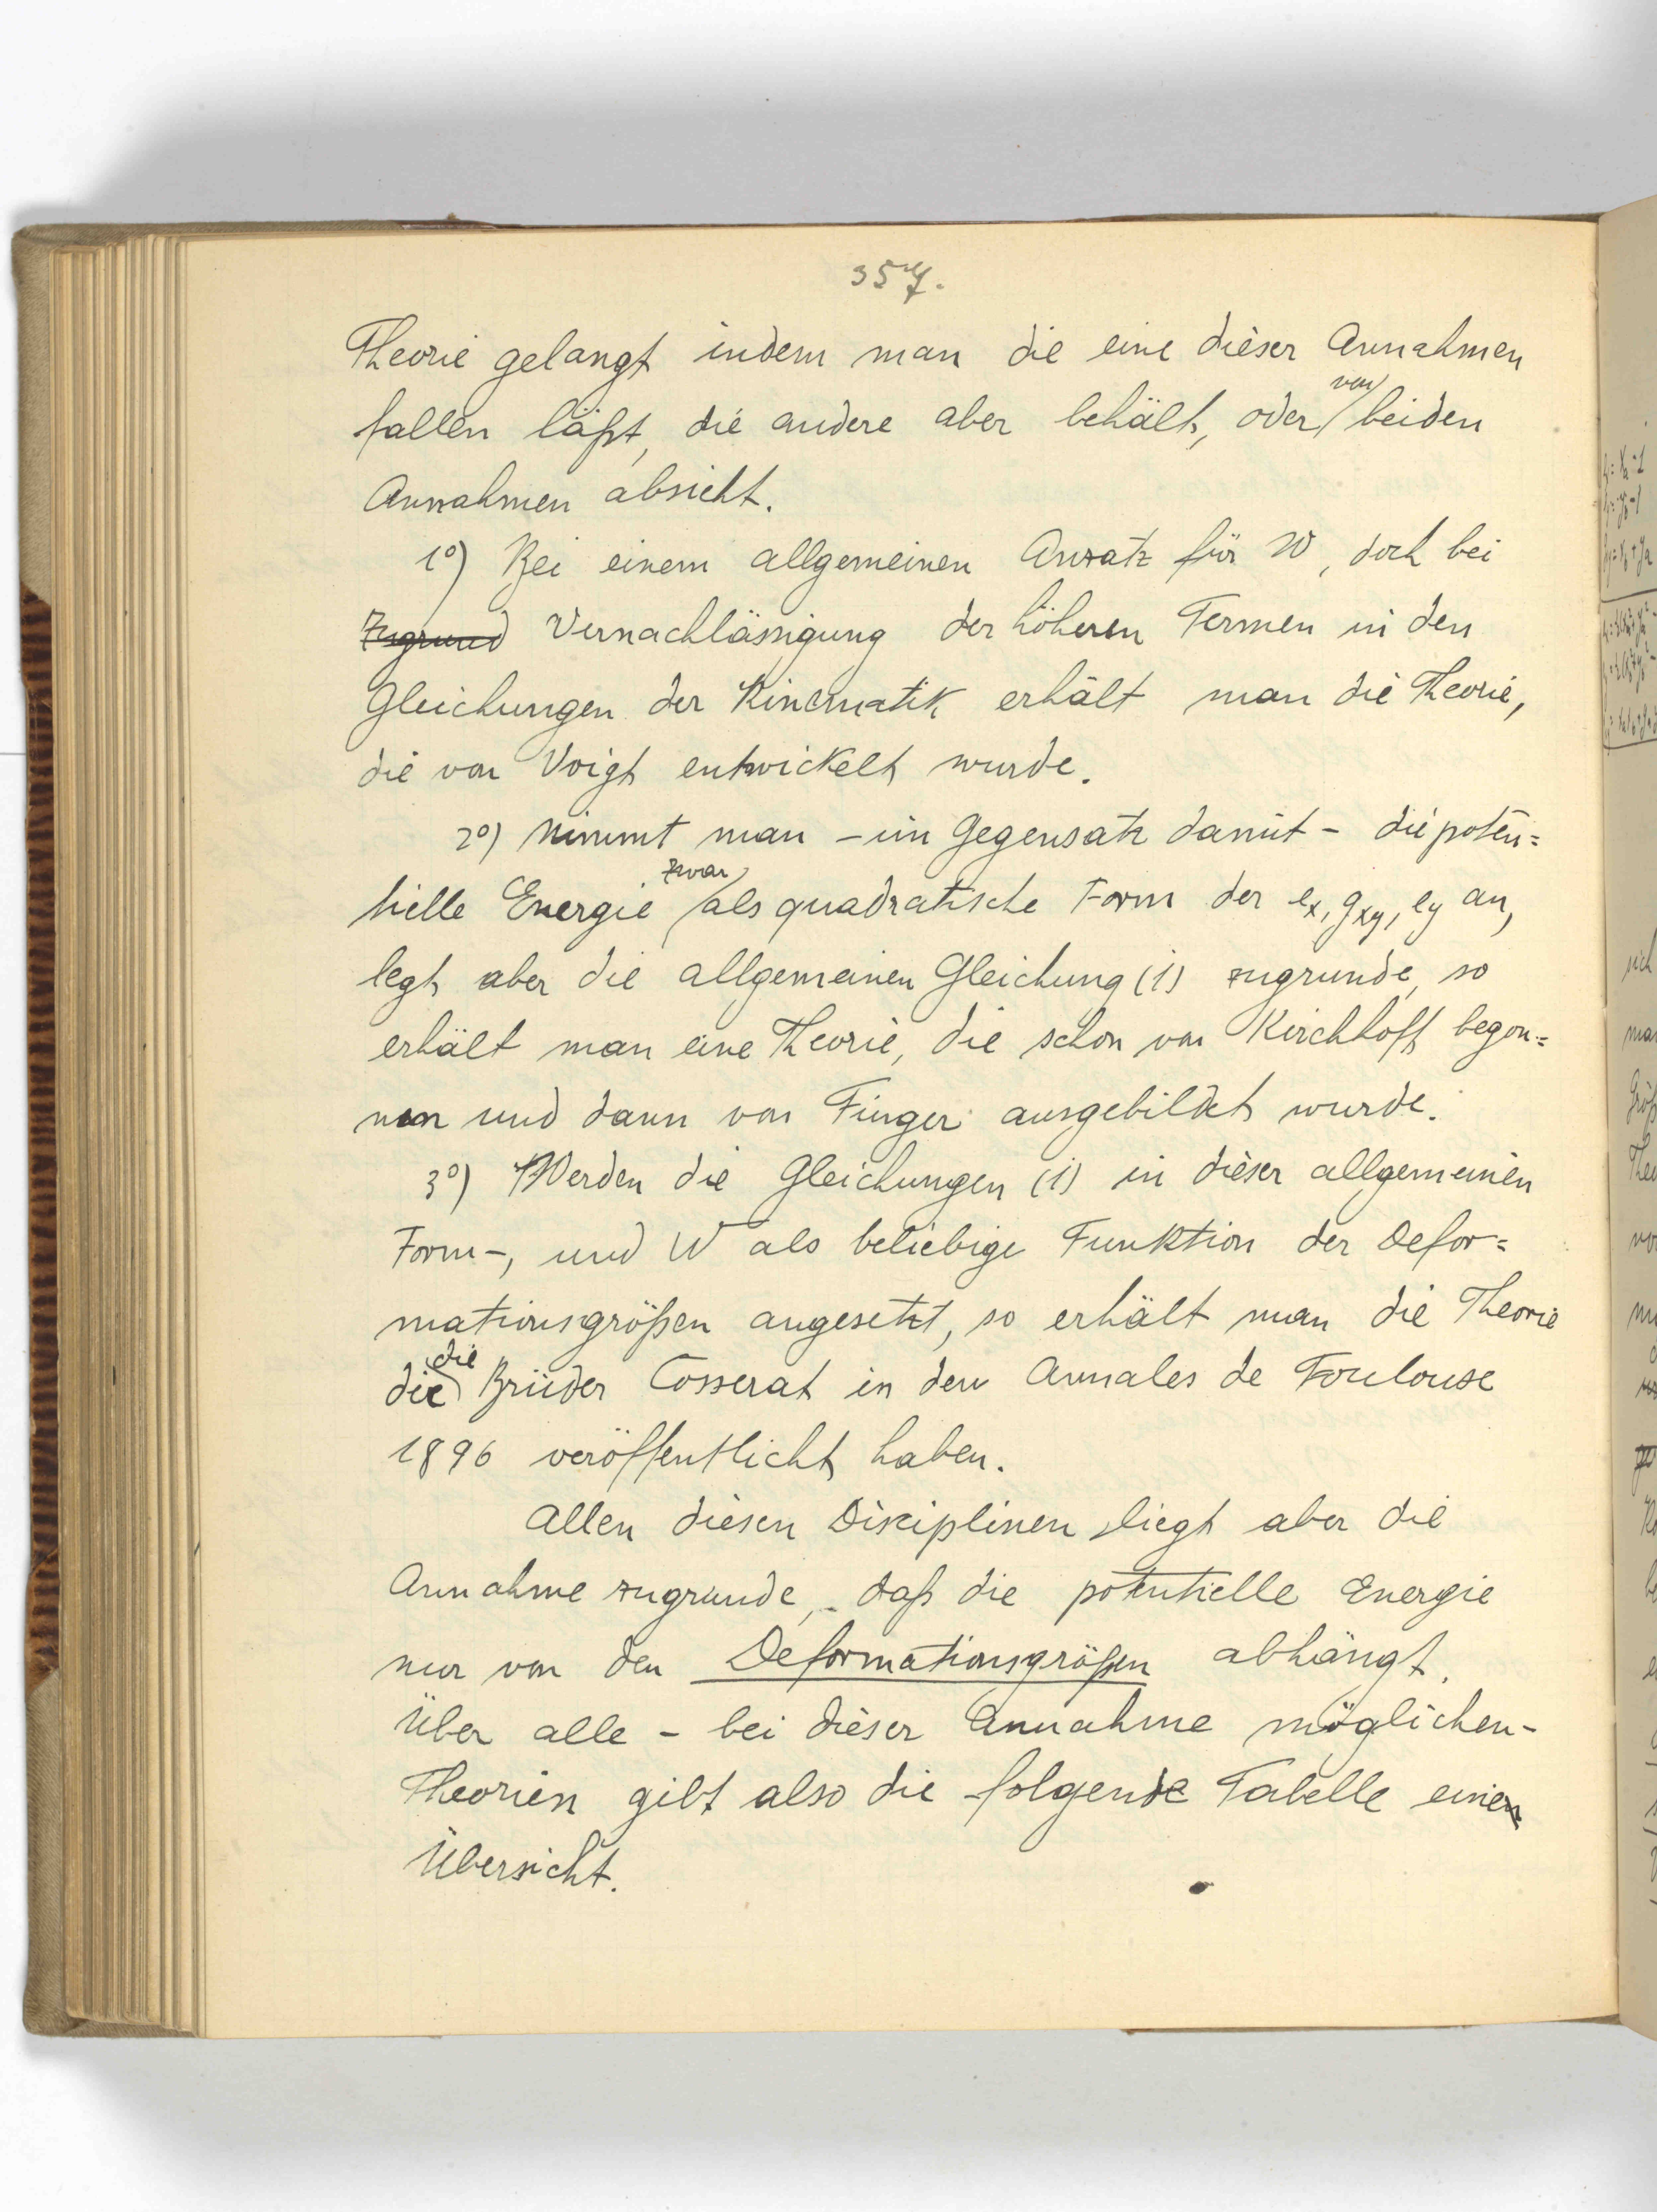 357.
Theorie gelangt indem man die eine dieser Annahmen
fallen läßt, die andere aber behält, oder von beiden
Annahmen absieht.
1°) Bei einem allgemeinen Ansatz für W, doch bei
Zugrund Vernachlässigung der höheren Termen in den
Gleichungen der Kinematik erhält man die Theorie,
die von Voigt entwickelt wurde.
2°) Nimmt man – im Gegensatz damit – die poten=
tielle Energie zwar als quadratische Form der ex, gxy, ey an,
legt aber die allgemeinen Gleichung (1) zugrunde, so
erhält man eine Theorie, die schon von Kirchhoff begon=
nen und dann von Finger ausgebildet wurde.
3°) Werden die Gleichungen (1) in dieser allgemeinen
Form-, und W als beliebige Funktion der Defor=
mationsgrößen angesetzt, so erhält man die Theorie
die die Brüder Cosserat in den Annales de Toulouse
1896 veröffentlicht haben.
Allen diesen Disciplinen liegt aber die
Annahme zugrunde, daß die potentielle Energie
nur von den Deformationsgrößen abhängt.
Über alle – bei dieser Annahme möglichen –
Theorien gibt also die folgende Tabelle eine
Übersicht.